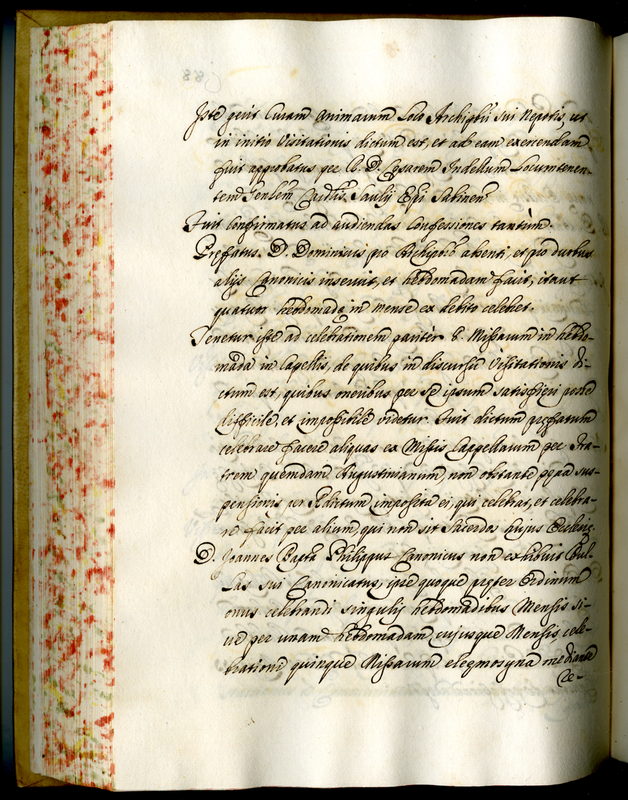 Iste gerit Curam Animarum loco Archipbri sui Nepotis, ut
in initio Visitationis dictum est, et ad eam exercendam
fuit approbatus per R. D. Cesarem Locumtenen-
tem Epi Sabinen
Fuit confirmatus ad audiendas Confessiones tantum.
Prefatus D. Dominicus pro Archipbro absenti, et pro duobus
alijs Canonicis inservit, et hebdomadam facit, itaut
quatuor hebdomadas in mense ex debito celebret.
Tenetur iste ad celebrationem pariter 6. Missarum in hebdo-
mada in Capellis, de quibus in discursu Visitationis di-
ctum est, quibus oneribus per se ipsum satisfieri pene
difficile, et impossibile videtur. Fuit dictum prefatum
celebrare facere aliquas ex Missis Cappellarum per Fra-
trem quemdam Augustinianum, non obstante pena sus-
pensionis per Edictum imposita ei, qui celebrat, et celebra-
re facit per alium, qui non sit Sacerdos hujus Ecclesie.
D. Joannes Bapta Philippus Canonicus non exhibuit Bul-
las sui Canonicatus, ipse quoque preter Ordinum
onus celebrandi singulis hebdomadibus Mensis si-
ve per unam hebdomadam cujusque Mensis cele-
brationi quinque Missarum eleemosyna mediante
re-